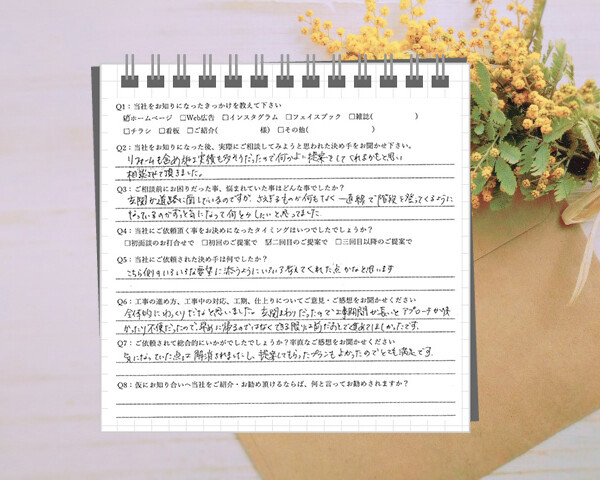 Q1：当社をお知りになったきっかけを教えて下さい
☑ホームページ □Web広告 □インスタグラム □フェイスブック □雑誌( )
□チラシ □看板 □ご紹介( 様) □その他( )
Q2：当社をお知りになった後、実際にご相談してみようと思われた決め手をお聞かせ下さい。
リフォームも含め施工実績も多そうだったので何かよい提案をしてくれるかもと思い
相談させて頂きました。
Q3：ご相談前にお困りだった事、悩まれていた事はどんな事でしたか？
玄関が道路に面しているのですが、さえぎるものが何もなく一直線で階段を登ってくるように
なっているのがずっと気になって何とかしたいと思ってました
Q4：当社にご依頼頂く事をお決めになったタイミングはいつでしたでしょうか？
□初面談のお打合せで □初回のご提案で ☑二回目のご提案で □三回目以降のご提案で
Q5：当社にご依頼された決め手は何でしたか？
こちら側のいろいろな要望に添うようにいろいろ考えてくれた点かなと思います
Q6：工事の進め方、工事中の対応、工期、仕上りについてご意見・ご感想をお聞かせください
全体的にゆっくりだなと思いました。玄関まわりだったので工事期間が長いとアプローチが
かったり不便だったので、早めに
Q7：ご依頼されて総合的にいかがでしたでしょうか？率直なご感想をお聞かせください
気になっていた点は解消されましたし、提案してもらったプランもよかったのでとても満足です.
Q8：仮にお知り合いへ当社をご紹介・お勧め頂けるならば、何と言ってお勧めされますか？